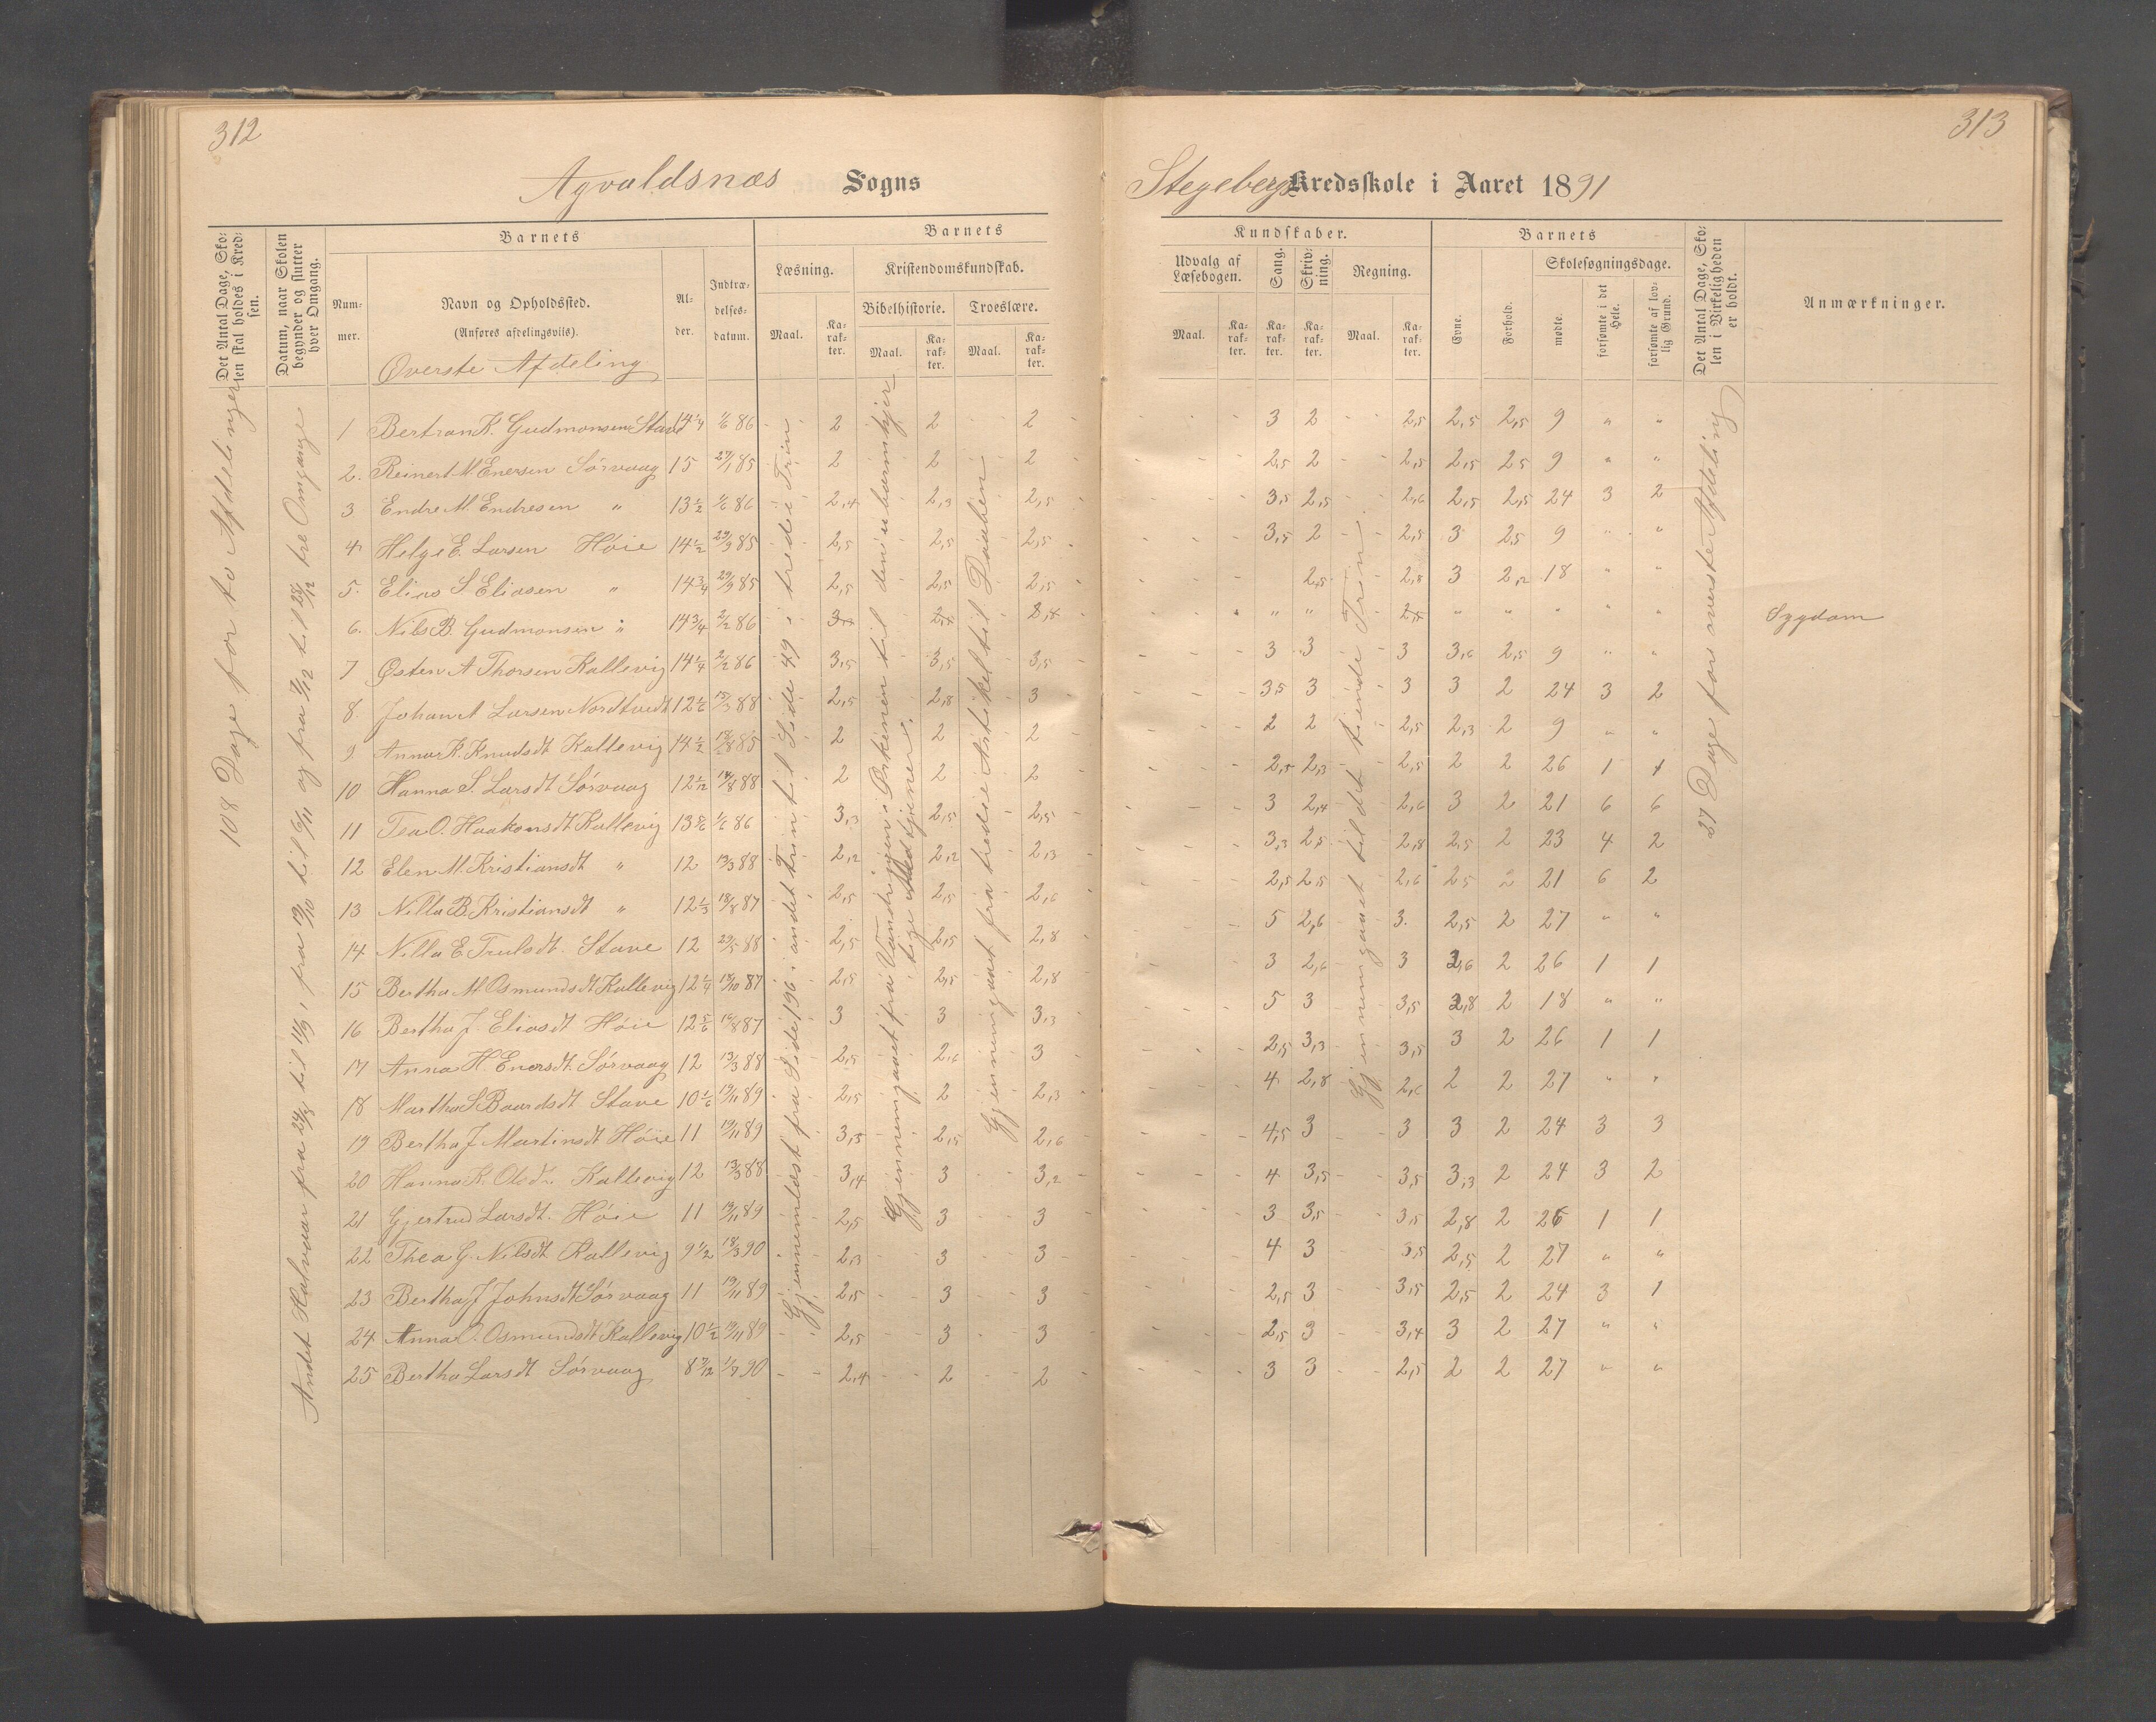 312
Agvaldsnæs Sogns
Det Antal Dage, Skolen skal holdes i Kredsen.
Datum, naar Skolen begynder og slutter hver Omgang.
Barnets
Nummer.
Navn og Opholdssted.
(Anføres afdelingsviis).
Alder.
Indtrædelsesdatum.
Barnets
Læsning.
Maal.
Karakter.
Kristendomskundskab.
Bibelhistorie.
Maal.
Karakter.
Troeslære.
Maal.
Karakter.
Øverste Afdeling
108 Dage for to Afdelinger
Andet Halvaar fra 24/8 til 11/9, fra 19/10 til 6/11 og fra 7/12 til 23/12 tre Omgange
Gjennemlæst fra Side 196 i andet Trin til Side 49 i tredie Trin
Gjennemgaaet fra Vandringen i Ørkenen til den ubarmhjertige Medtjener.
Gjennemgaaet fra tredie Artikel til Daaben
1 Bertran K. Gudmonsen Stave 14 1/4 1/6 86 2 2 2
2. Reinert M. Enersen Sørvaag 15 27/1 85 2 2 2
3 Endre M. Endresen " 13 1/2 1/6 86 2,4 2,3 2,5
4 Helge E. Larsen Høie 14 1/2 29/9 85 2,5 2,5 2,5
5. Elias S Eliasen " 14 3/4 29/9 85 2,5 2,5 2,5
6. Nils B. Gudmonsen " 14 3/4 2/2 86
7 Østen A Thorsen Kallevig 14 1/4 2/2 86 3,5 3,5 3,5
8. Johan A Larsen Nordtvedt 12 1/6 15/3 88 2,5 2,8 3
9 Anna K. Knudsdt Kallevig 14 1/2 18/8 85 2 2 2
10 Hanna S. Larsdt Sørvaag 12 1/12 14/8 88 2 2 2
11 Tea O. Haakonsdt Kallevig 13 5/6 1/6 86 3,3 2,5 2,5
12 Elen M. Kristiansdt " 12 19/3 88 2,2 2,2 2,3
13 Nilla B. Kristiansdt " 12 1/3 18/8 87 2,5 2,5 2,6
14 Nilla E. Trulsdt. Stave 12 29/5 88 2,5 2,5 2,8
15 Bertha M. Osmundsdt Kallevig 12 1/4 18/10 87 2,5 2,5 2,8
16 Bertha J. Eliasdt Høie 12 5/6 16/8 87 3 3 3,3
17 Anna H. Enersdt. Sørvaag 12 19/3 88 2,5 2,6 3
18 Martha S Baardsdt Stave 10 1/6 19/11 89 2,5 2 2,3
19 Bertha J. Martinsdt Høie 11 19/11 89 3,3 2,5 2,6
20 Hanna K. Olsdt. Kallevig 12 19/3 88 3,4 3 3,2
21 Gjertrud Larsdt. Høie 11 19/11 89 2,5 3 3
22 Thea G. Nilsdt Kallevig 9 1/2 18/3 90 2,3 3 3
23 Bertha J Johnsdt Sørvaag 11 19/11 89 2,5 3 3
24 Anna O. Osmundsdt Kallevig 10 1/2 19/11 89 2,5 3 3
25 Bertha Larsdt Sørvaag 8 7/12 1/9 90 2,4 2 2
313
Stegebergs Kredsskole i Aaret 1891
Kundskaber.
Udvalg af Læsebogen.
Maal.
Karakter.
Sang.
Karakter.
Skrivning.
Karakter.
Regning.
Maal.
Karakter.
Barnets
Evne.
Forhold.
Skolesøgningsdage.
mødte.
forsømte i det Hele.
forsømte af lovlig Grund.
Det Antal Dage, Skolen i Virkeligheden er holdt.
Anmærkninger.
Gjennemgaaet til det tiende Trin.
27 Dage for øverste Afdeling
3 2 2,5 2,5 2,5 9 " "
2,5 2 2,5 2,5 2,5 9 " "
3,5 2,5 2,6 2,5 2,5 24 3 2
3,5 2 2,5 3 2,5 9 " "
2,5 2,8 3 2,2 18 " "
" " " " " " " Sygdom
3 3 3 3,6 2,5 9 " "
3,5 3 3 3 2 24 3 2
2 2 2,5 2,3 2 9 " "
2,5 2,3 2,5 2 2 26 1 1
3 2,4 2,6 3 2 21 6 6
3,3 2,5 2,8 2,5 2 23 4 2
2,5 2,5 2,6 2,5 2 21 6 2
5 2,6 3. 2,5 2 27 " "
3 2,6 3 2,6 2 26 1 1
5 3 3,5 2,8 2 18 " "
2,5 3,3 3,5 3 2 26 1 1
4 2,8 2,6 2 2 27 " "
4,5 3 3 3 2 24 3 3
4 3,5 3,5 3,3 2 24 3 2
3 3,5 3,5 2,8 2 26 1 1
4 3 3,5 2,5 2 27 " "
2,5 3 3,5 2,5 2 24 3 1
2,5 3 3,4 3 2 27 " "
3 3 2,5 2 2 27 " "